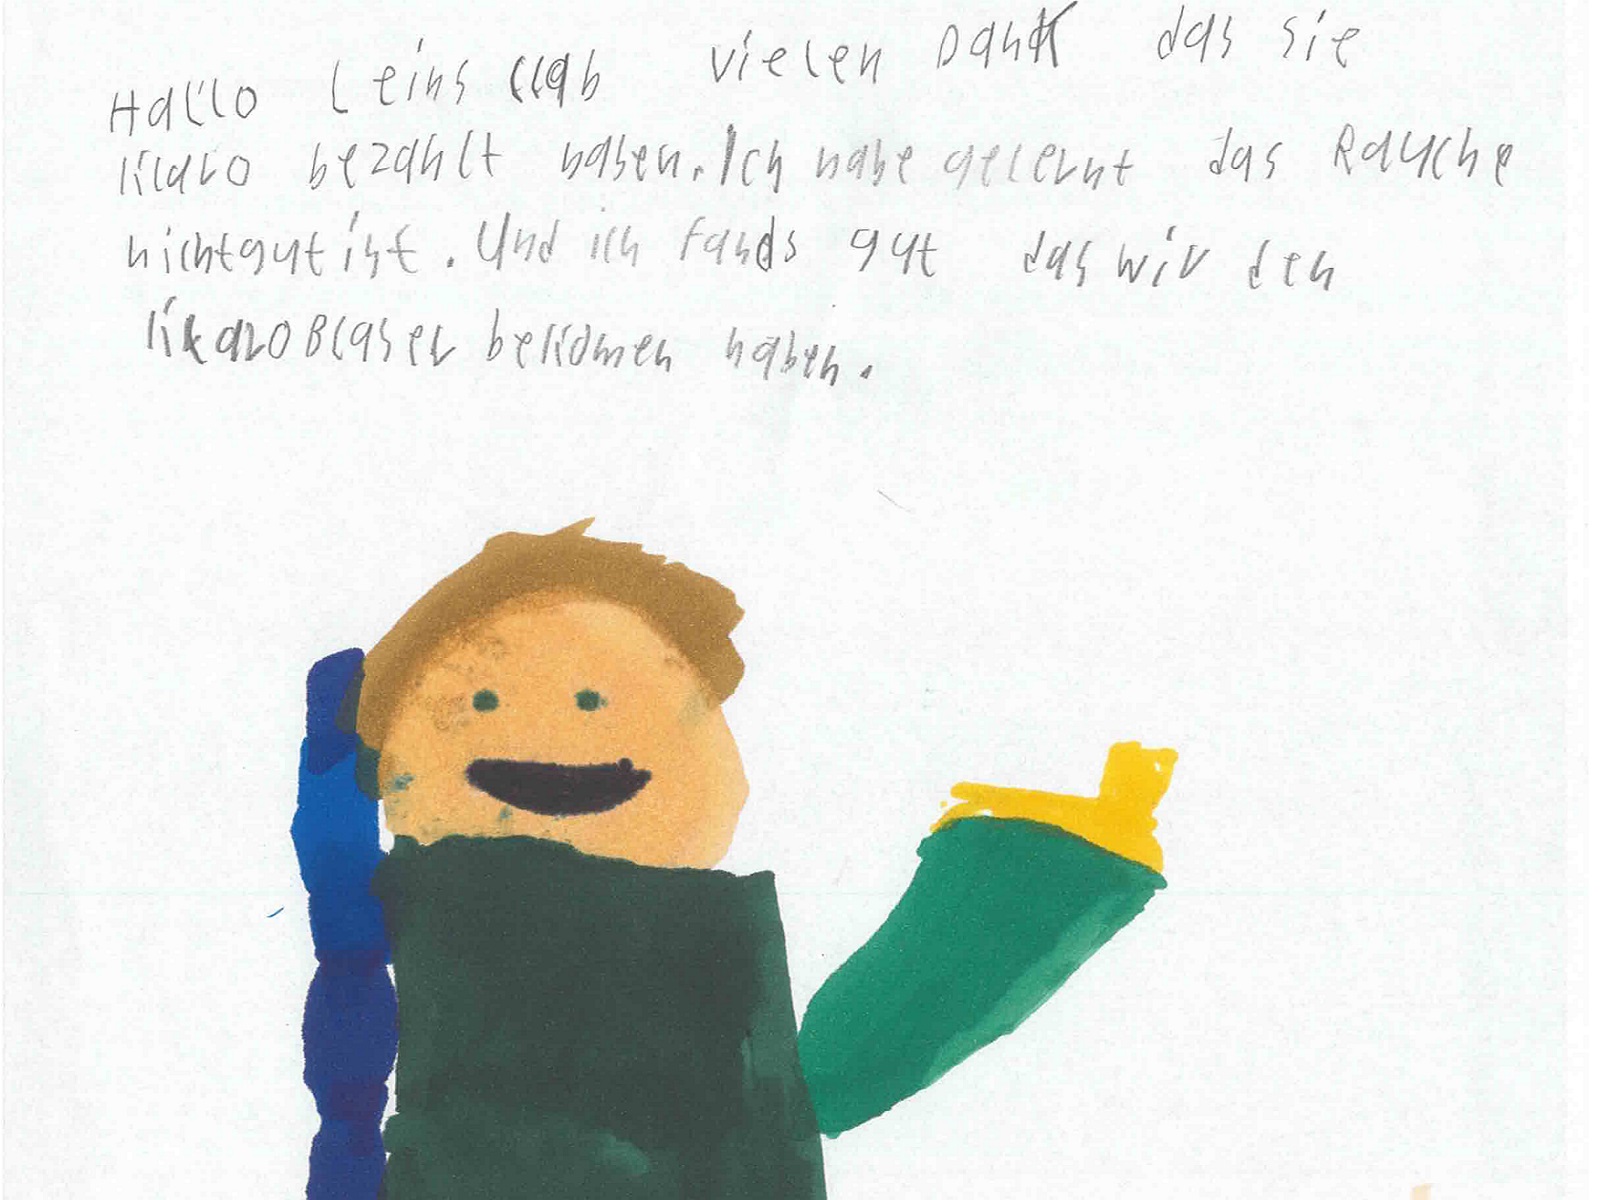 Hallo Leins clab vielen Dank das sie
Klaro bezahlt haben. Ich habe gelernt das Rauche
nicht gut ist. Und ich fands gut das wir den
Klaro Blaser bekomen haben.